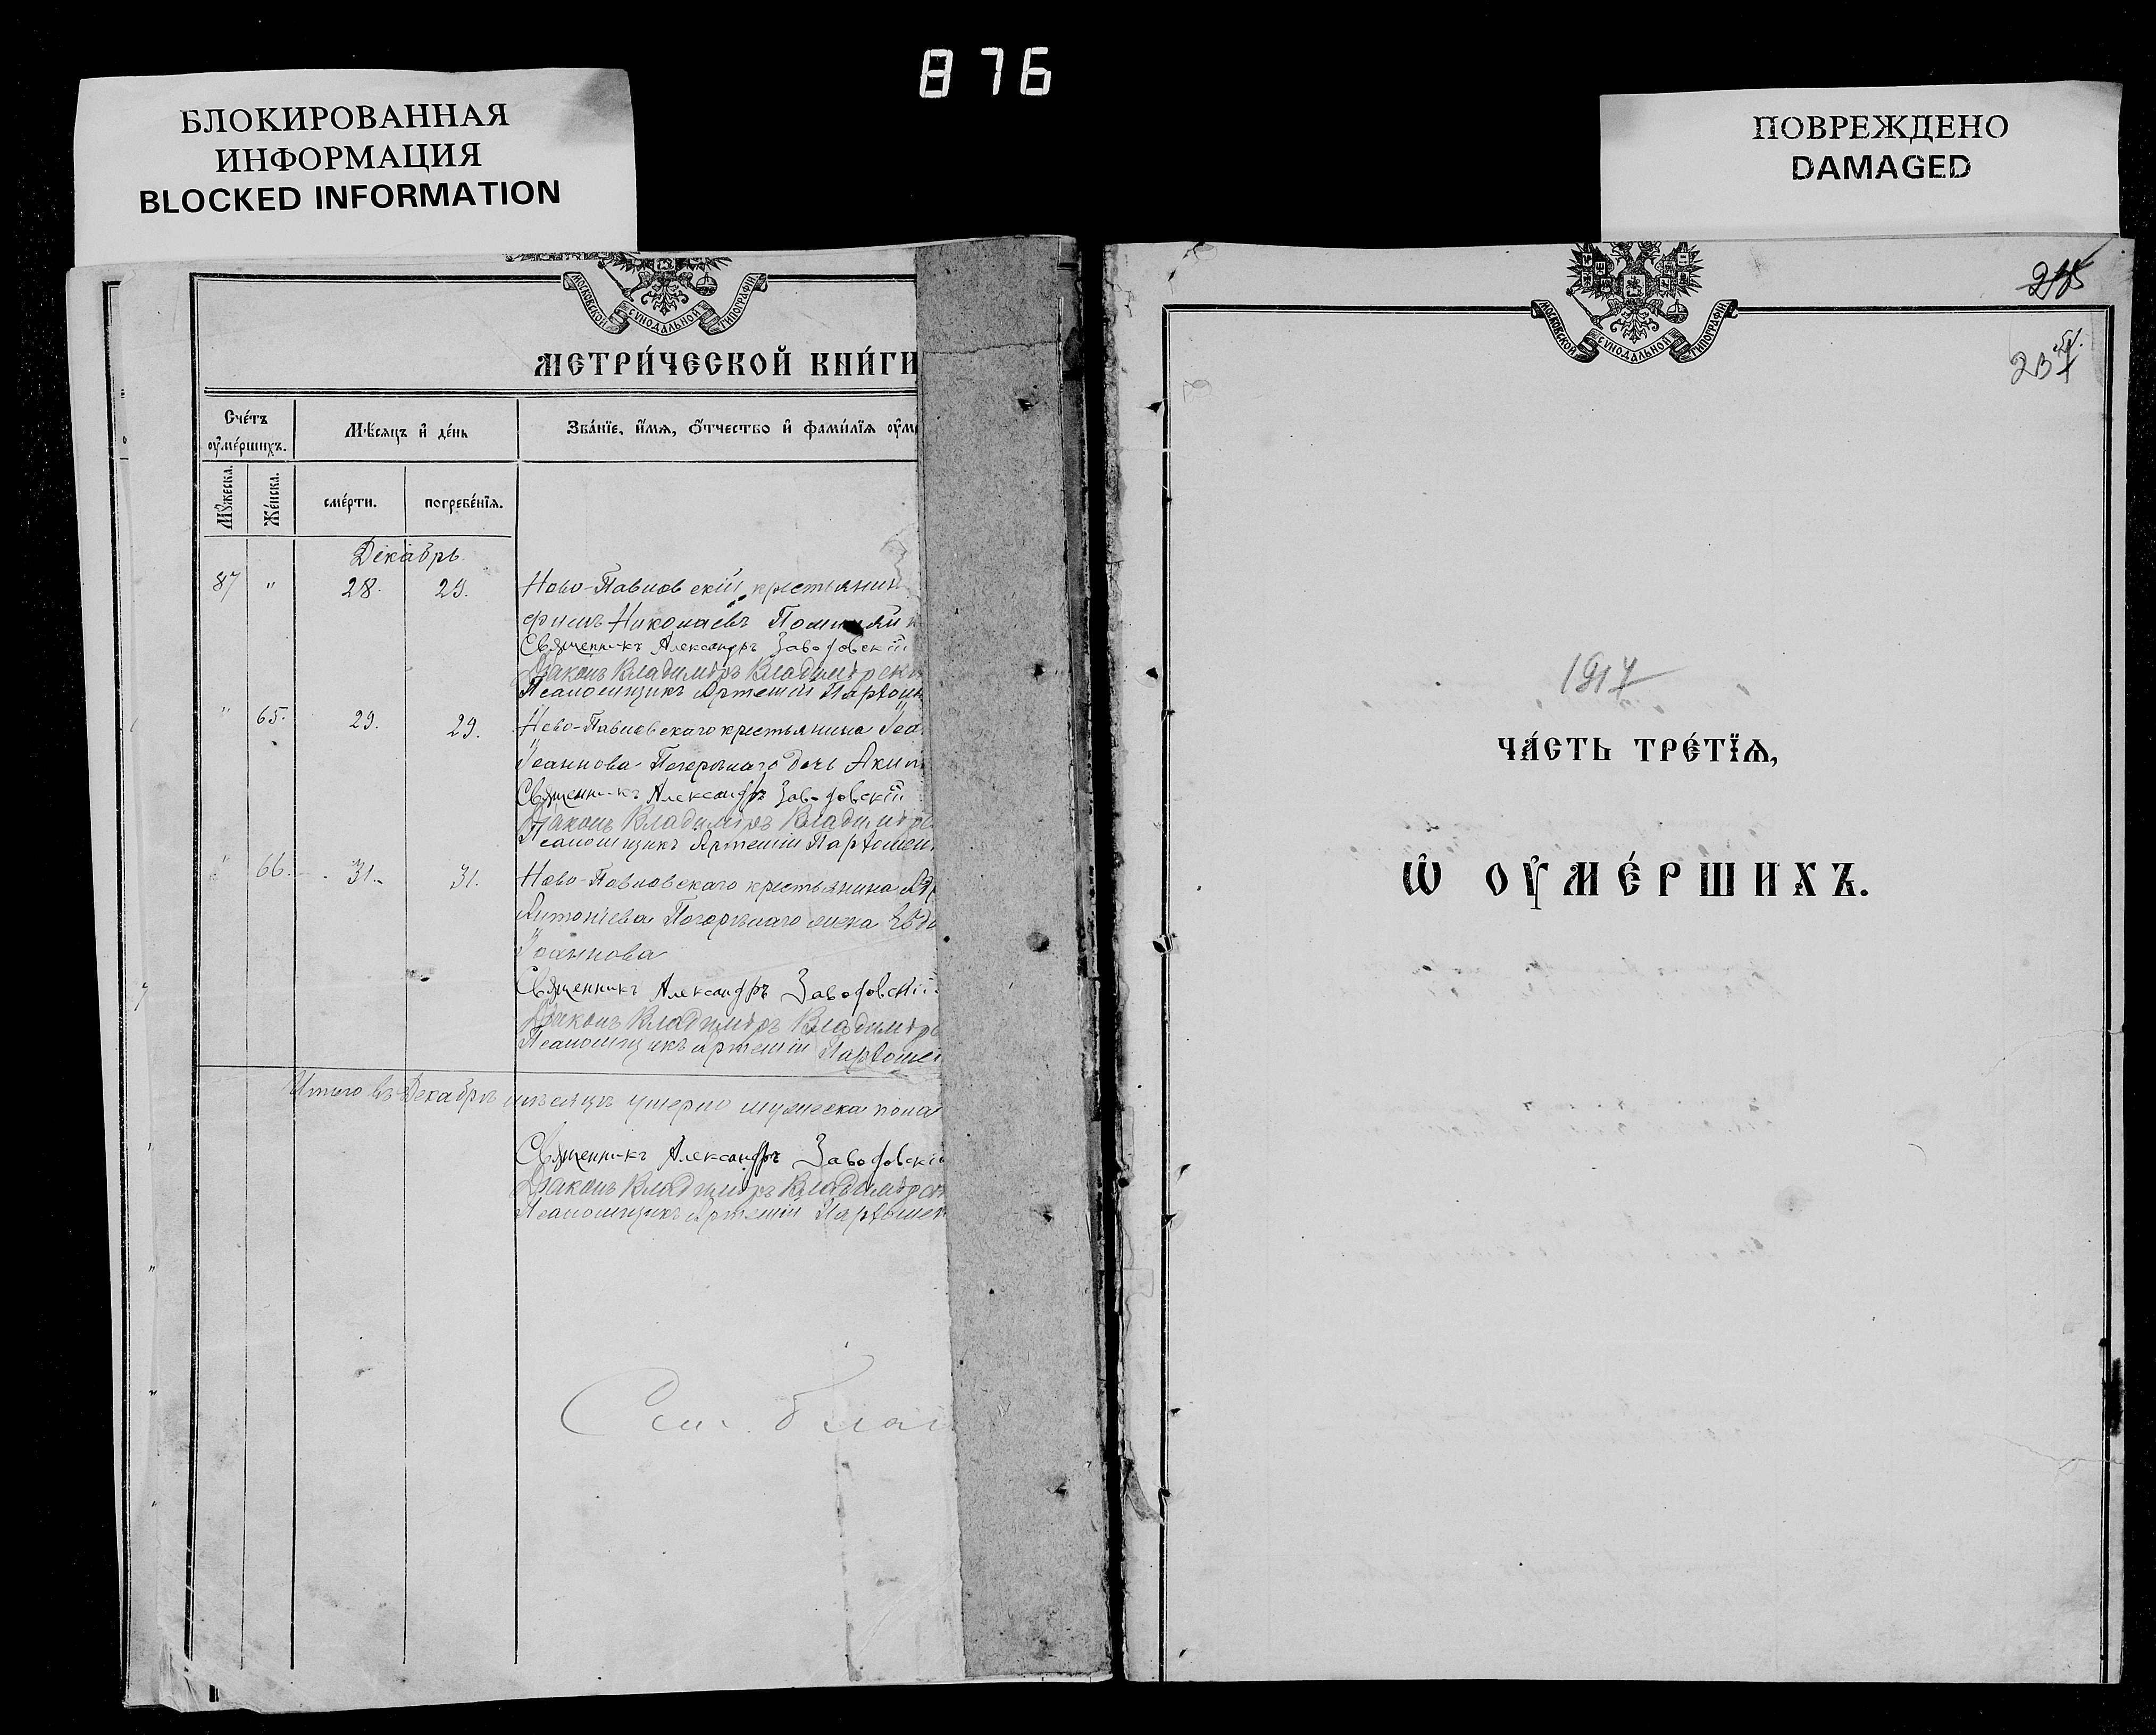 876
БЛОКИРОВАННАЯ
ИНФОРМАЦИЯ
BLOCKED INFORMATION
ПОВРЕЖДЕНО
DAMAGED
МОСКОВСКОЙ СѴНОДАЛЬНОЙ ТИПОГРАФІИ
МЕТРИ́ЧЕСКОЙ КНИ́ГИ
Сче́тъ
оу҆ме́ршихъ.
Мѣ́сяцъ и҆ де́нь
Зва́нїе, и҆́мѧ, ѻ҆́тчество и҆ фами́лїѧ оу҆м
Мꙋ́жеска.
Же́нска.
сме́рти.
погребе́нїѧ.
Декабрь
87 " 28. 29. Ново-Павловскій крестьянин
Николаевъ
Священникъ Александръ Заводовскій
Діаконъ Владиміръ Владимірски
Псаломщикъ Артемій Парѳоме
" 65. 29. 29. Ново-Павловскаго крестьянина Іоа
Іоаннова Погорѣлаго дочь Акил
Священникъ Александръ Заводовскій
Діаконъ Владиміръ Владимірс
Псаломщикъ Артемій Парѳомен
" 66. 31. 31. Ново-Павловскаго крестьянина
Антоніева Погорѣлаго жена Евдо
Іоаннова
Священникъ Александръ Заводовскій
Діаконъ Владиміръ Владимірс
Псаломщикъ Артемій Парѳомен
Итого въ Декабрѣ мѣсяцѣ умерло мужеска пола
Священникъ Александръ Заводовскій
Діаконъ Владиміръ Владимірск
Псаломщикъ Артемій Парѳомен
МОСКОВСКОЙ СѴНОДАЛЬНОЙ ТИПОГРАФІИ
1917
ЧА́СТЬ ТРЕ́ТЇѦ,
Ѡ҆ ОУ҆МЕ́РШИХЪ.